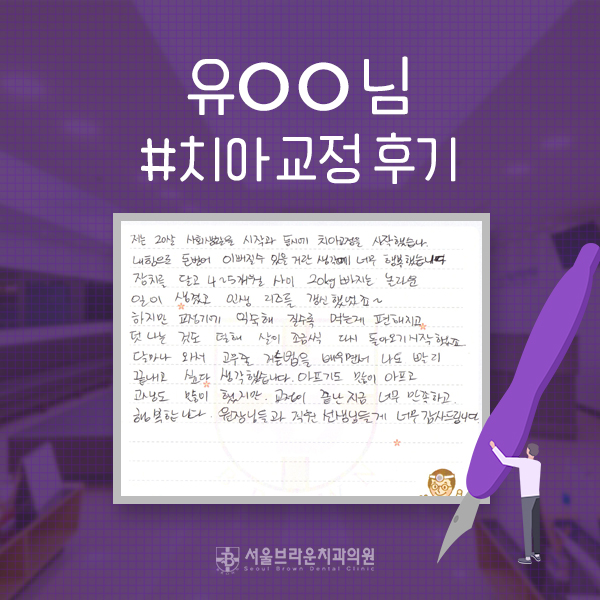 유○○님
#치아교정 후기
저는 20살 사회생활을 시작과 동시에 치아교정을 시작했습니다.
내 힘으로 돈벌어 이뻐질수 있을거란 생각에 너무 행복했습니다
장치를 달고 4~5개월 사이 20kg 빠지는 놀라운
일이 생겼고 인생 리즈를 갱신했었죠~
하지만 교정기에 익숙해 질수록 먹는게 편해지고
덧나는 것도 덜해 살이 조금씩 다시 돌아오기 시작했죠
닥마나 와서 고무줄 거는법을 배우면서 나도 빨리
끝내고 싶다 생각했습니다. 아프기도 많이 아프고
고생도 많이 했지만. 교정이 끝난 지금 너무 만족하고.
행복합니다. 원장님들과 직원 선생님들께 너무 감사드립니다.
서울브라운치과의원
Seoul Brown Dental Clinic